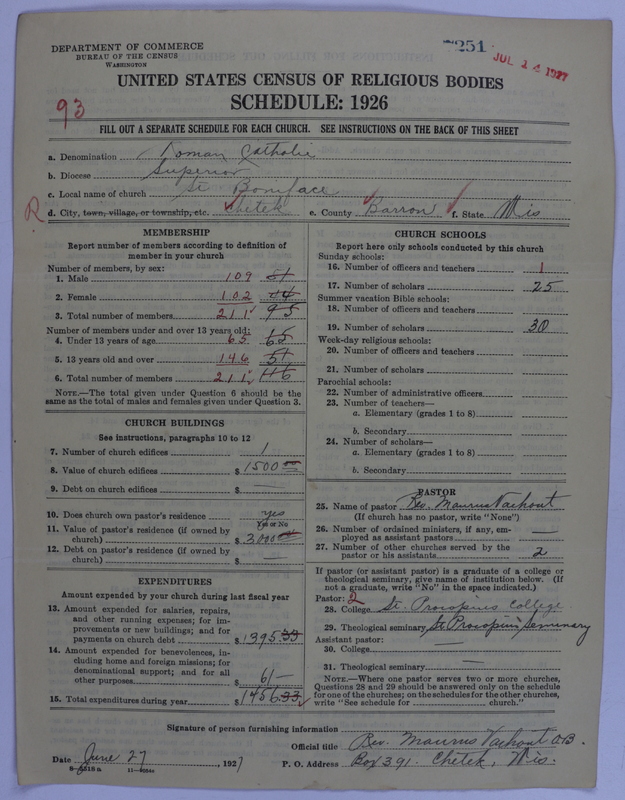 DEPARTMENT OF COMMERCE
BUREAU OF THE CENSUS
WASHINGTON
7251
JUL 14 1927
UNITED STATES CENSUS OF RELIGIOUS BODIES
SCHEDULE: 1926
93
FILL OUT A SEPARATE SCHEDULE FOR EACH CHURCH. SEE INSTRUCTIONS ON THE BACK OF THIS SHEET
a. Denomination Roman Catholic
b. Diocese Superior
c. Local name of church St Boniface
R d. City, town, village, or township, etc. Chetek e. County Barron f. State Wis
MEMBERSHIP
Report number of members according to definition of
member in your church
Number of members, by sex:
1. Male 109 51
2. Female 102 44
3. Total number of members 211 95
Number of members under and over 13 years old:
4. Under 13 years of age 65 65
5. 13 years old and over 146 51
6. Total number of members 211 116
NOTE.—The total given under Question 6 should be
same as the total of males and females given under Question 3.
CHURCH BUILDINGS
See instructions, paragraphs 10 to 12
7. Number of church edifices 1
8. Value of church edifices $1500 00
9. Debt on church edifices $ —
10. Does church own pastor's residence yes
Yes or No
11. Value of pastor's residence (if owned by
church) $2000 00
12. Debt on pastor's residence (if owned by
church) $ —
EXPENDITURES
Amount expended by your church during last fiscal year
13. Amount expended for salaries, repairs,
and other running expenses; for im-
provements or new buildings; and for
payments on church debt $1395 33
14. Amount expended for benevolences, in-
cluding home and foreign missions; for
denominational support; and for all
other purposes $61 —
15. Total expenditures during year $1456 33
CHURCH SCHOOLS
Report here only schools conducted by this church
Sunday schools:
16. Number of officers and teachers 1
17. Number of scholars 25
Summer vacation Bible schools:
18. Number of officers and teachers
19. Number of scholars 30
Week-day religious schools:
20. Number of officers and teachers
21. Number of scholars
Parochial schools:
22. Number of administrative officers
23. Number of teachers—
a. Elementary (grades 1 to 8)
b. Secondary
24. Number of scholars—
a. Elementary (grades 1 to 8)
b. Secondary
PASTOR
25. Name of pastor Rev. Maurus Vachout
(If church has no pastor, write "None")
26. Number of ordained ministers, if any, em-
ployed as assistant pastors —
27. Number of other churches served by the
pastor or his assistants 2
If pastor (or assistant pastor) is a graduate of a college or
theological seminary, give name of institution below. (If
not a graduate, write "No" in the space indicated.)
Pastor: 2
28. College St. Procopius College
29. Theological seminary St Procopius Seminary
Assistant pastor:
30. College —
31. Theological seminary —
NOTE.—Where one pastor serves two or more churches,
Questions 28 and 29 should be answered only on the schedule
for one of the churches; on the schedules for the other churches,
write "See schedule for church."
Signature of person furnishing information
Official title Rev. Maurus Vachout
Date June 27, 1927 P. O. Address Box 391. Chetek, Wis.